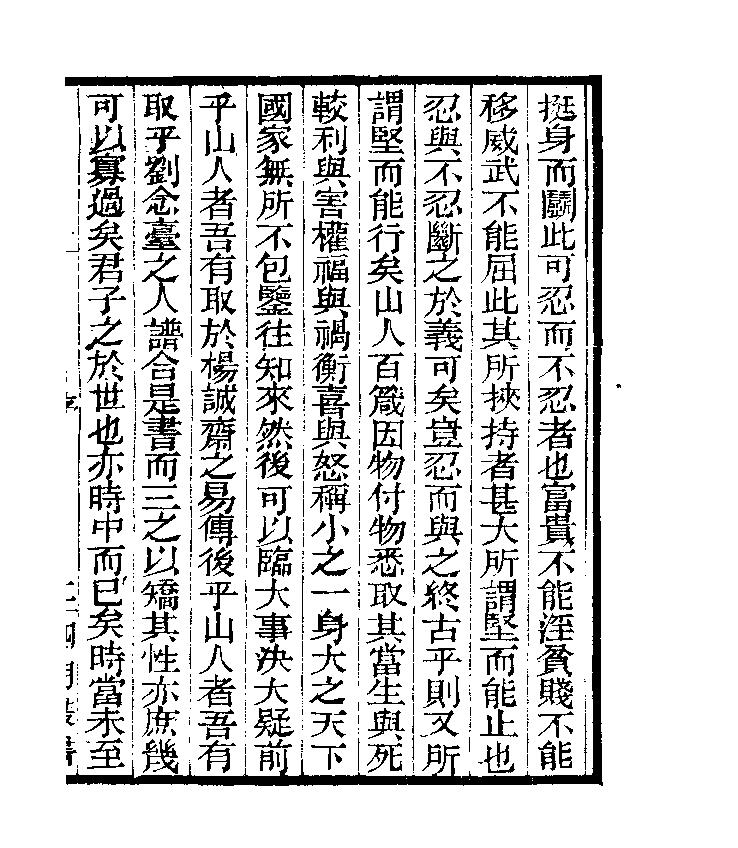 挺身而鬭此可忍而不忍者也富貴不能淫貧賤不能
移威武不能屈此其所挾持者甚大所謂堅而能止也
忍與不忍斷之於義可矣豈忍而與之終古乎則又所
謂堅而能行矣山人百箴因物付物悉取其當生與死
較利與害權福與禍衡喜與怒稱小之一身大之天下
國家無所不包鑒往知來然後可以臨大事决大疑前
乎山人者吾有取於楊誠齋之易傳後乎山人者吾有
取乎劉念臺之人譜合是書而三之以矯其性亦庶幾
可以寡過矣君子之於世也亦時中而已矣時當未至